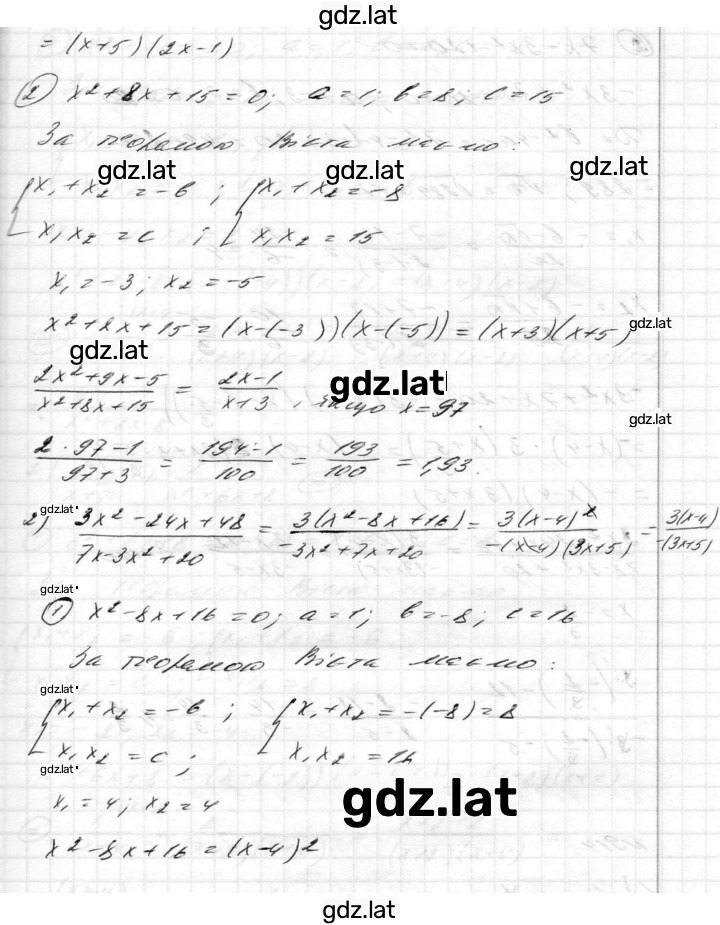 gdz.lat
= (x+5)(2x-1)
② x²+8x+15=0; a=1; b=8; c=15
За теоремою Вієта маємо:
gdz.lat gdz.lat gdz.lat
{x₁+x₂=-b ; {x₁+x₂=-8
x₁x₂=c ; x₁x₂=15
x₁=-3; x₂=-5
x²+8x+15=(x-(-3))(x-(-5))=(x+3)(x+5)
gdz.lat gdz.lat
(2x²+9x-5)/(x²+8x+15) = (2x-1)/(x+3), якщо x=97
gdz.lat gdz.lat
(2·97-1)/(97+3) = (194-1)/100 = 193/100 = 1,93.
gdz.lat gdz.lat
2) (3x²-24x+48)/(7x-3x²+20) = 3(x²-8x+16)/(-3x²+7x+20) = 3(x-4)²/(-(x-4)(3x+5)) = 3(x-4)/(-(3x+5))
gdz.lat
① x²-8x+16=0; a=1; b=-8; c=16
За теоремою Вієта маємо:
gdz.lat
{x₁+x₂=-b ; {x₁+x₂=-(-8)=8
x₁x₂=c ; x₁x₂=16
gdz.lat
x₁=4; x₂=4
gdz.lat
x²-8x+16=(x-4)²
gdz.lat